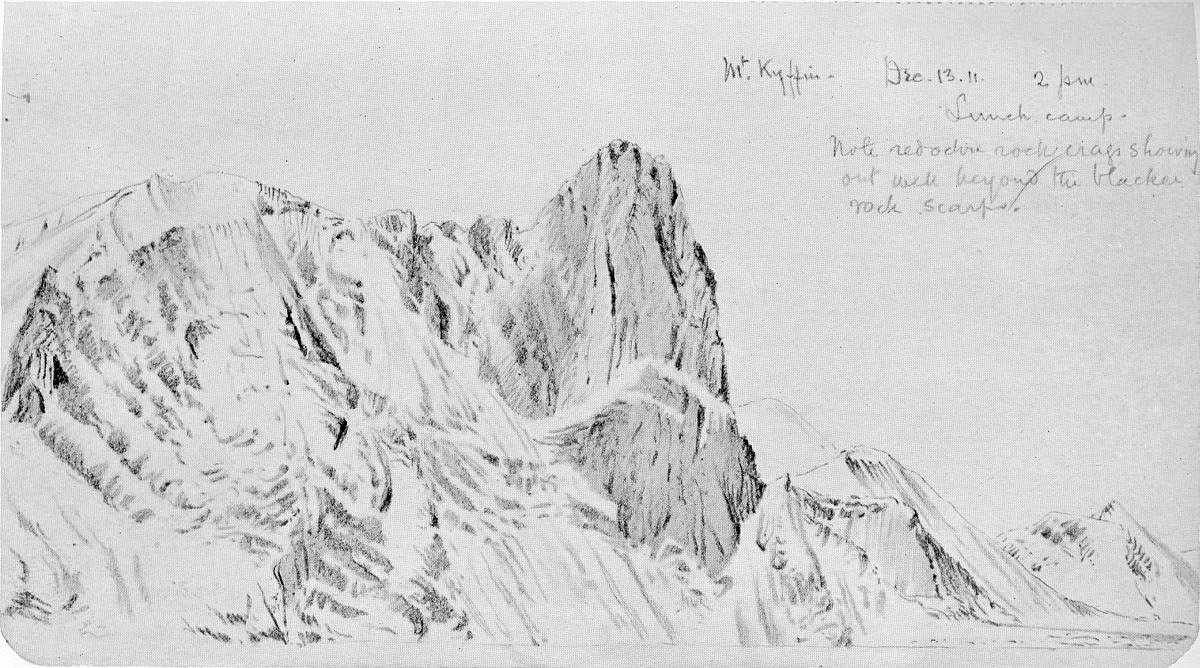 Mt Kyffin - Dec. 13. 11. 2 pm.
Lunch camp -
Note redochre rock crags showing
out well beyond the blacker
rock scarp.